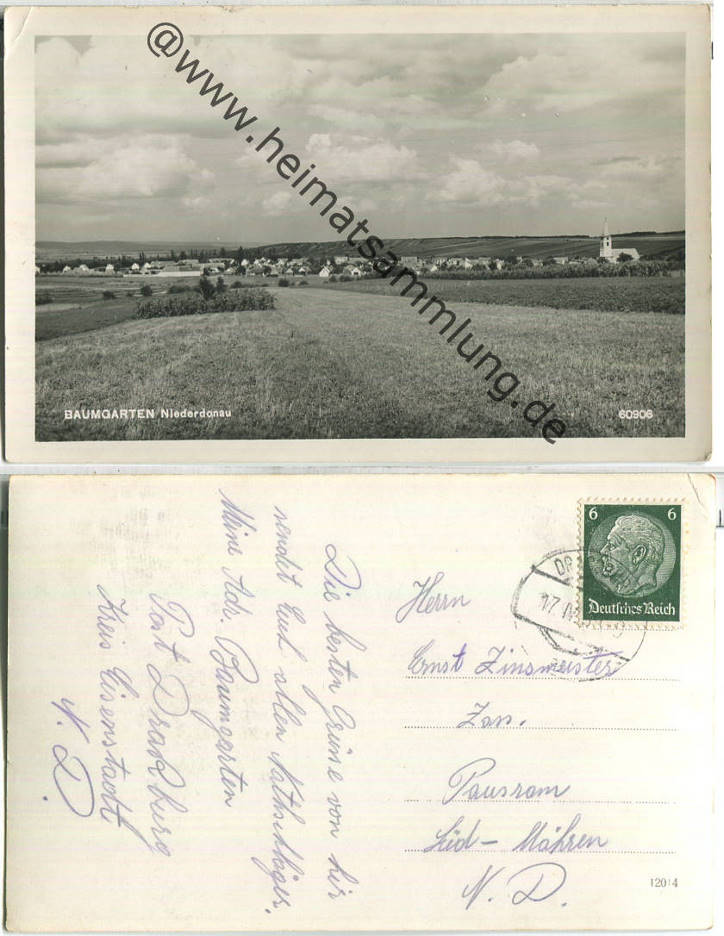 @www.heimatsammlung.de
BAUMGARTEN Niederdonau
60906
Die besten Grüsse von hir
sendet Euch allen
Meine Adr. Baumgarten
Post Draßburg
Kreis Eisenstadt
N. D.
6 6
Deutsches Reich
Herrn
Ernst Zinsmeister
Pausram
Süd-Mähren
N. D.
12014